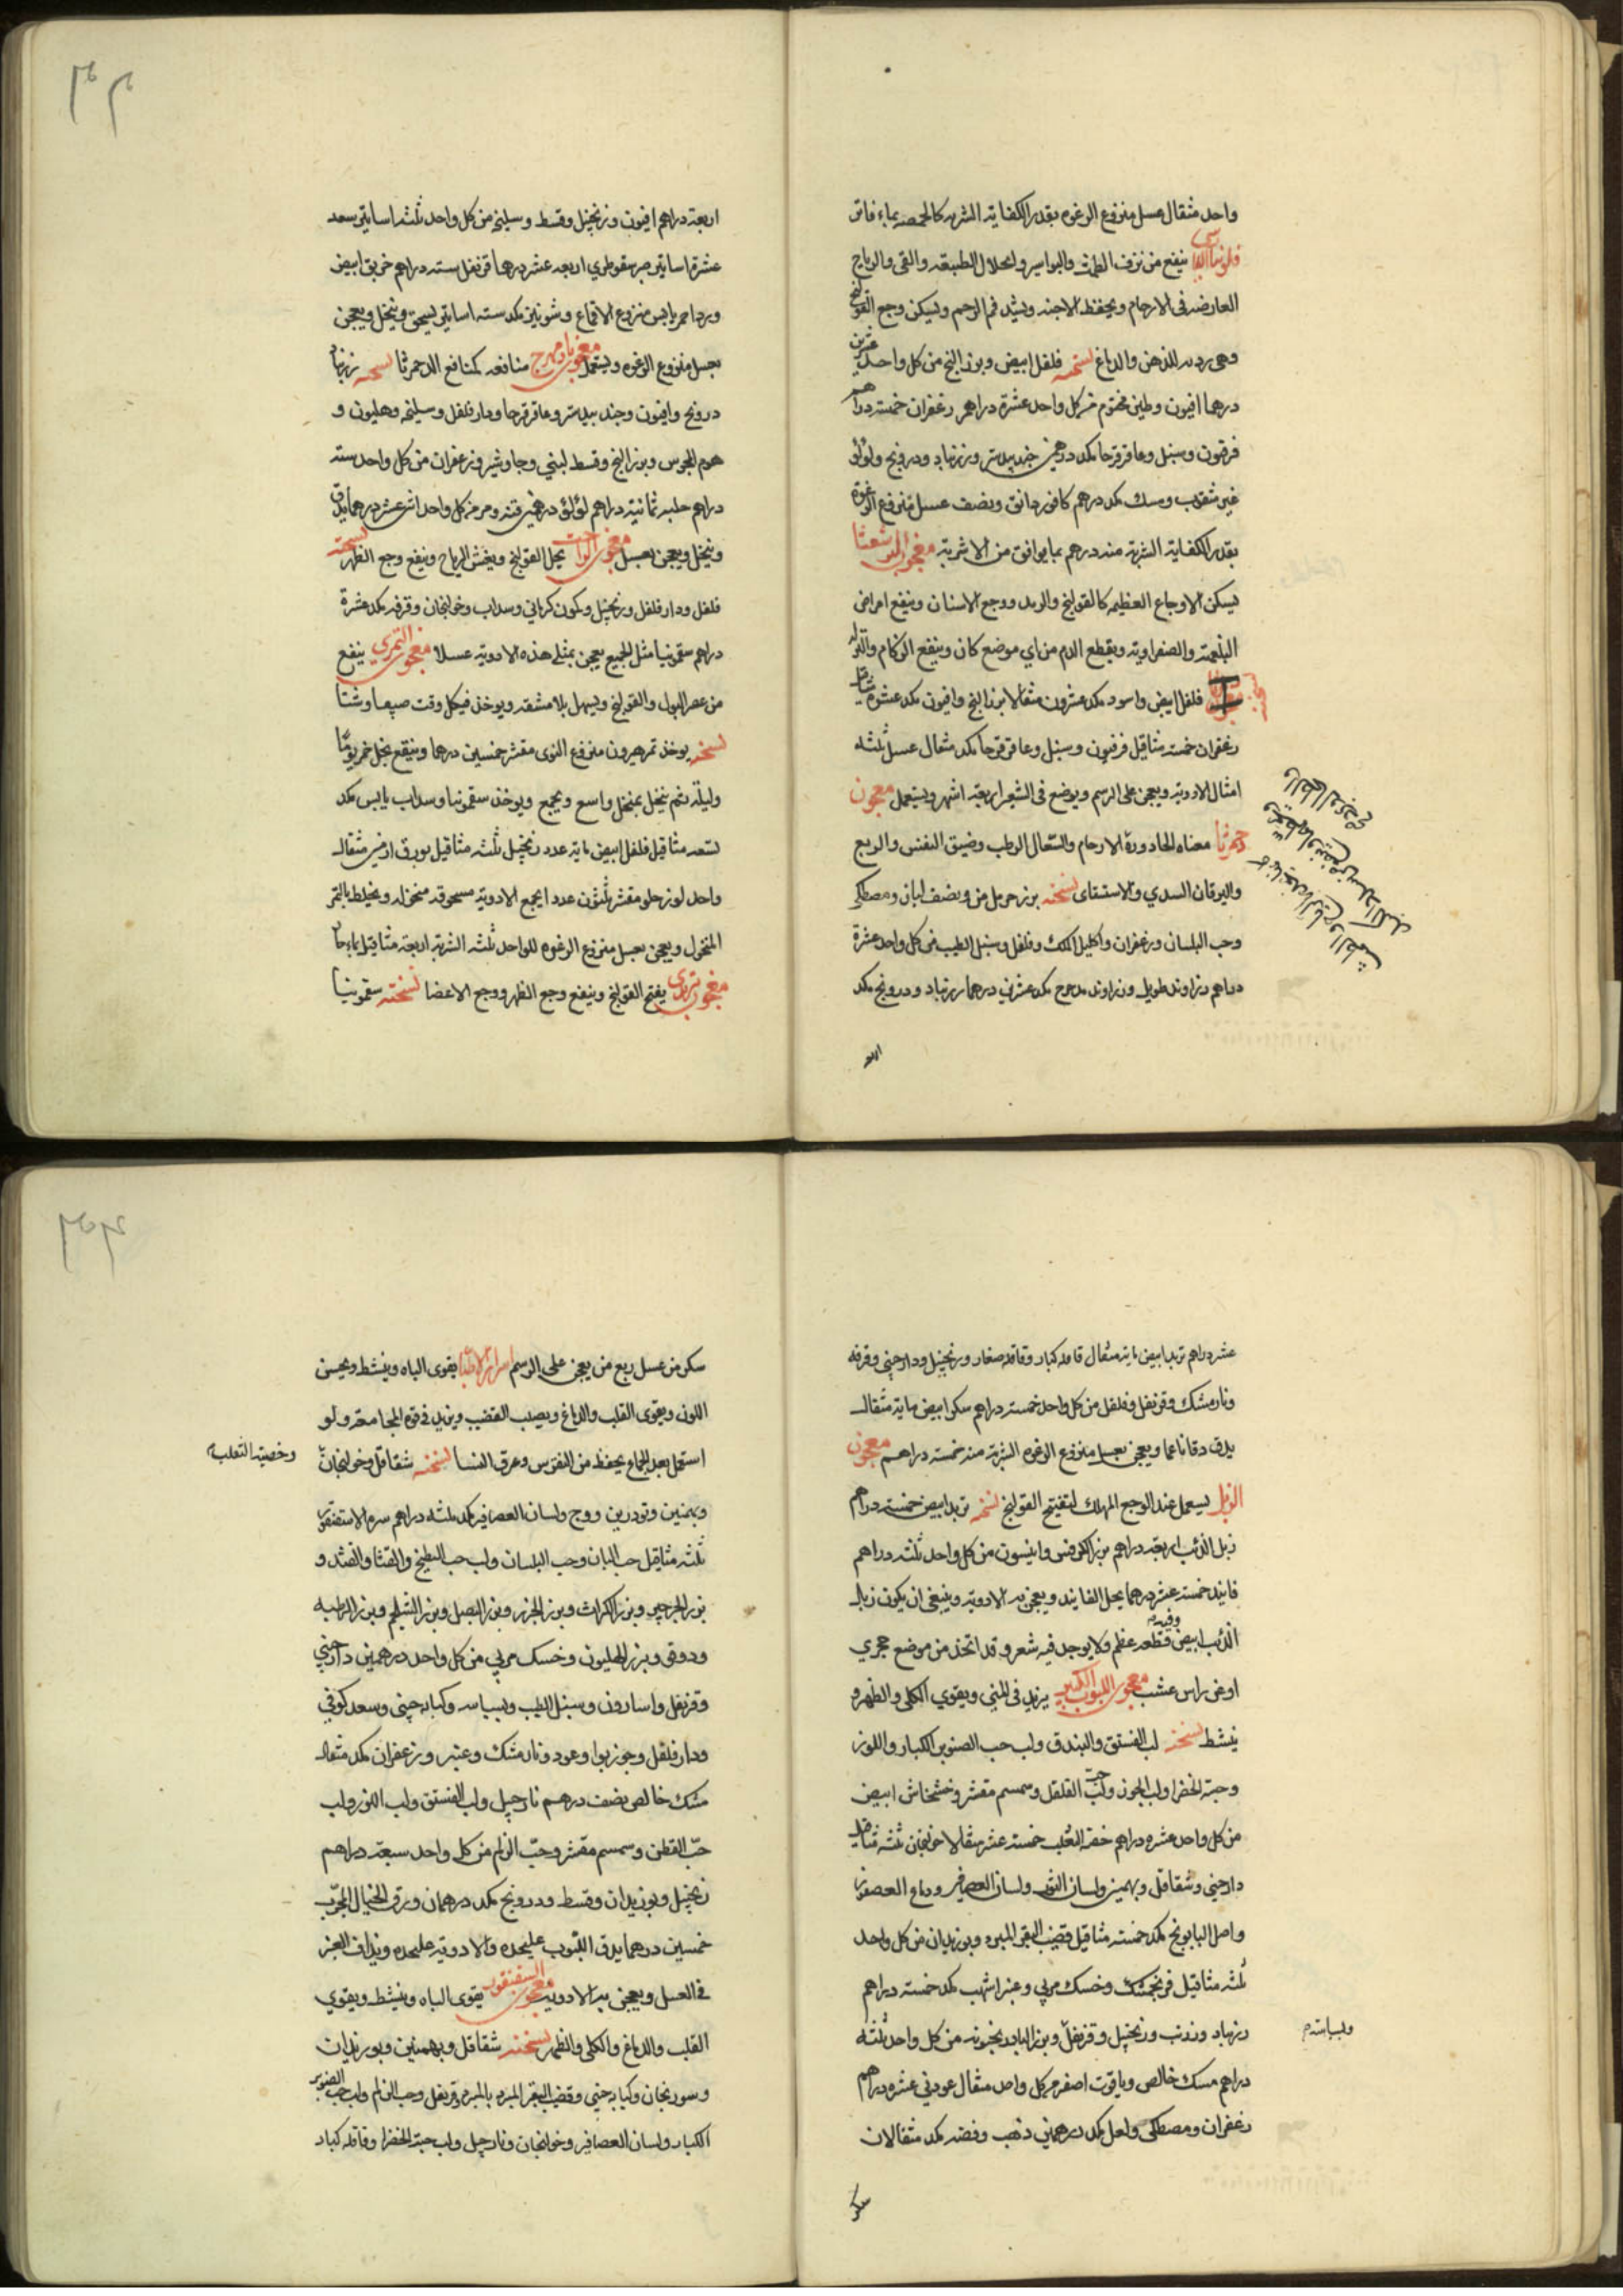 واحد مثقال عسل منزوع الرغوه بقدر الكفاية الشربه كالحمصه بماء فاتر
فلونيا الفارسي ينفع من نزف الطمث والبواسير وانحلال الطبيعه والقى والرياح
العارضه فى الارحام ويحفظ الاجنه ويشد فم الرحم ويسكن وجع القولنج
وهى رديه للذهن والدماغ نسخته فلفل ابيض وبزر البنج من كل واحد عشرين
درهما افيون وطين مختوم من كل واحد عشرة دراهم زعفران خمسة دراهم
فرفيون وسنبل وعاقرقرحا مكد درهمين جندبيدستر وزرنباد ودرونج ولؤلؤ
غير مثقوب ومسك مكد درهم كافور دانق ونصف عسل منزوع الرغوة
بقدر الكفاية الشربة منه درهم بما يوافق من الاشربة معجون البرشعثا
يسكن الاوجاع العظيمه كالقولنج والرمد ووجع الاسنان وينفع امراض
البلغميه والصفراويه ويقطع الدم من اي موضع كان وينفع الزكام والنزله
فلفل ابيض واسود مكد عشرون مثقالا بزر البنج وافيون مكد عشرة مثاقيل
زعفران خمسه مثاقيل فرفيون وسنبل وعاقرقرحا مكد مثقال عسل ثلثه
امثال الادوية ويعجن على الرسم ويوضع فى الشعير اربعة اشهر ويستعمل معجون
دحمرثا معناه الحاد ورق الارحام والسعال الرطب وضيق النفس والربع
واليرقان السدي والاستسقاى نسخته بزر حرمل من ونصف لبان ومصطكى
وحب البلسان وزعفران واكليل الملك وفلفل وسنبل الطيب من كل واحد عشرة
دراهم وزراوند طويل وزراوند مدحرج مكد عشرين درهما زرنباد ودرونج مكد
اربعة
اربعة دراهم افيون وزنجبيل وقسط وسليخه من كل واحد ثلثه اساتير سعد
عشرة اساتير صبر سقوطري اربعه عشر درهما قرنفل سته دراهم خربق ابيض
ورد احمر يابس منزوع الاقماع وشونيز مكد سته اساتير يسحق وينخل ويعجن
بعسل منزوع الرغوه ويستعمل معجون بادمهرج منافعه كمنافع الدحمرثا نسخته زرنباد
درونج وافيون وجندبيدستر وعاقرقرحا ودارفلفل وسليخه وهليون و
هوم المجوس وبزر البنج وقسط لبني وجاوشير وزعفران من كل واحد سته
دراهم حلبه ثمانية دراهم لؤلؤ درهمين قنه ومر من كل واحد اثنى عشر درهما يدق
وينخل ويعجن بعسل معجون يحل القولنج ويفش الرياح وينفع وجع الظهر نسخته
فلفل ودارفلفل وزنجبيل وكمون كرماني وسداب وخولنجان وقرفه مكد عشرة
دراهم سقمونيا مثل الجميع يعجن بمثل هذه الادويه عسلا معجون التمري ينفع
من عسر البول والقولنج ويسهل بلا مشقه ويوخذ فى كل وقت صيفا وشتا
نسخته يوخذ تمر هيرون منزوع النوى مقشر خمسين درهما وينقع بخل خمر يومًا
وليلة ثم ينخل بمنخل واسع ويجمع ويوخذ سقمونيا وسداب يابس مكد
تسعه مثاقيل فلفل ابيض ماية عدد زنجبيل ثلثه مثاقيل بورق ارمني مثقال
واحد لوز حلو مقشر ثلثون عددا يجمع الادوية مسحوقه منخوله ويخلط بالتمر
المنخول ويعجن بعسل منزوع الرغوه للواحد ثلثه الشربة اربعة مثاقيل بماء حار
معجون يفتح القولنج وينفع وجع الظهر ووجع الاعضا نسخته سقمونيا
عشر دراهم تربد ابيض ماية مثقال قاقله كبار وقاقله صغار وزنجبيل ودارچيني وقرفه
ونارمشك وقرنفل وفلفل من كل واحد خمسه دراهم سكر ابيض ماية مثقال
يدق دقا ناعما ويعجن بعسل منزوع الرغوه الشربة منه خمسه دراهم معجون
الزبل يستعمل عند الوجع المهلك لتفتيح القولنج نسخته تربد ابيض خمسه دراهم
زبل الذئب اربعة دراهم بزر الكرفس وانيسون من كل واحد ثلثه دراهم
فانيد خمسه عشر درهما يحل الفانيد ويعجن به الادوية وينبغى ان يكون زبل
الذئب ابيض وفيه قطعه عظم ولا يوجد فيه شعر وقد اتخذ من موضع حجري
او من راس عشب معجون اللبوب الكبير يزيد فى المني ويقوي الكلى والظهر و
ينشط نسخته لب الفستق والبندق ولب حب الصنوبر الكبار واللوز
وحبة الخضرا ولب الجوز ولب حب القلقل وسمسم مقشر وخشخاش ابيض
من كل واحد عشره دراهم خصيه الثعلب خمسه عشر مثقالا خولنجان ثلثه مثاقيل
دارچيني وشقاقل وبهمنين ولسان الثور ولسان العصافير ودماغ العصفور
واصل البابونج مكد خمسه مثاقيل قضيب البقر المبرد وبوزيدان من كل واحد
ثلثه مثاقيل فرنجمشك وخسك مربي وعنبر اشهب مكد خمسه دراهم
زرنباد وزرنب وزنجبيل وقرنفل وبزر البادرنجبويه من كل واحد ثلثه
وبسباسه
دراهم مسك خالص وياقوت اصفر من كل واحد مثقال عود ني عشره دراهم
زعفران ومصطكى ولعل مكد درهمين ذهب وفضه مكد مثقالان
سكر
سكر من عسل ربع من يعجن على الرسم اسرار الاطبا يقوى الباه وينشط ويحسن
اللون ويقوى القلب والدماغ ويصلب القضيب ويزيد فى قوه المجامعة ولو
استعمل بعد الجماع يحفظ من النقرس وعرق النسا نسخته شقاقل وخولنجان
وخصية الثعلب
وبهمنين وتودرين ووج ولسان العصافير مكد ثلثه دراهم سره الاسقنقور
ثلثه مثاقيل حب البان وحب البلسان ولب حب البطيخ والقثا والقثد و
بزر الجرجير وبزر الكراث وبزر الجزر وبزر البصل وبزر الشلجم وبزر الرطبه
ودوقو وبزر الهليون وخسك مربي من كل واحد درهمين دارچيني
وقرنفل واسارون وسنبل الطيب وبسباسه وكبابه چيني وسعد كوفي
ودارفلفل وجوزبوا وعود ونارمشك وعنبر وزعفران مكد مثقال
مشك خالص نصف درهم نارجيل ولب الفستق ولب اللوز ولب
حبّ القطن وسمسم مقشر وحبّ الزلم من كل واحد سبعة دراهم
زنجبيل وبوزيدان وقسط ودرونج مكد درهمان ورق الخيال المجرّب
خمسين درهما يدق اللبوب عليحده والادويه عليحده ويذاف العنبر
فى العسل ويعجن به الادوية معجون السقنقور يقوى الباه وينشط ويقوي
القلب والدماغ والكلى والظهر نسخته شقاقل وبهمنين وبوزيدان
وسورنجان وكبابه چيني وقضيب البقر المبرد بالمبرد وقرنفل وحب الزلم ولب حب الصنوبر
الكبار ولسان العصافير وخولنجان ونارجيل ولب حبة الخضرا وقاقله كبار